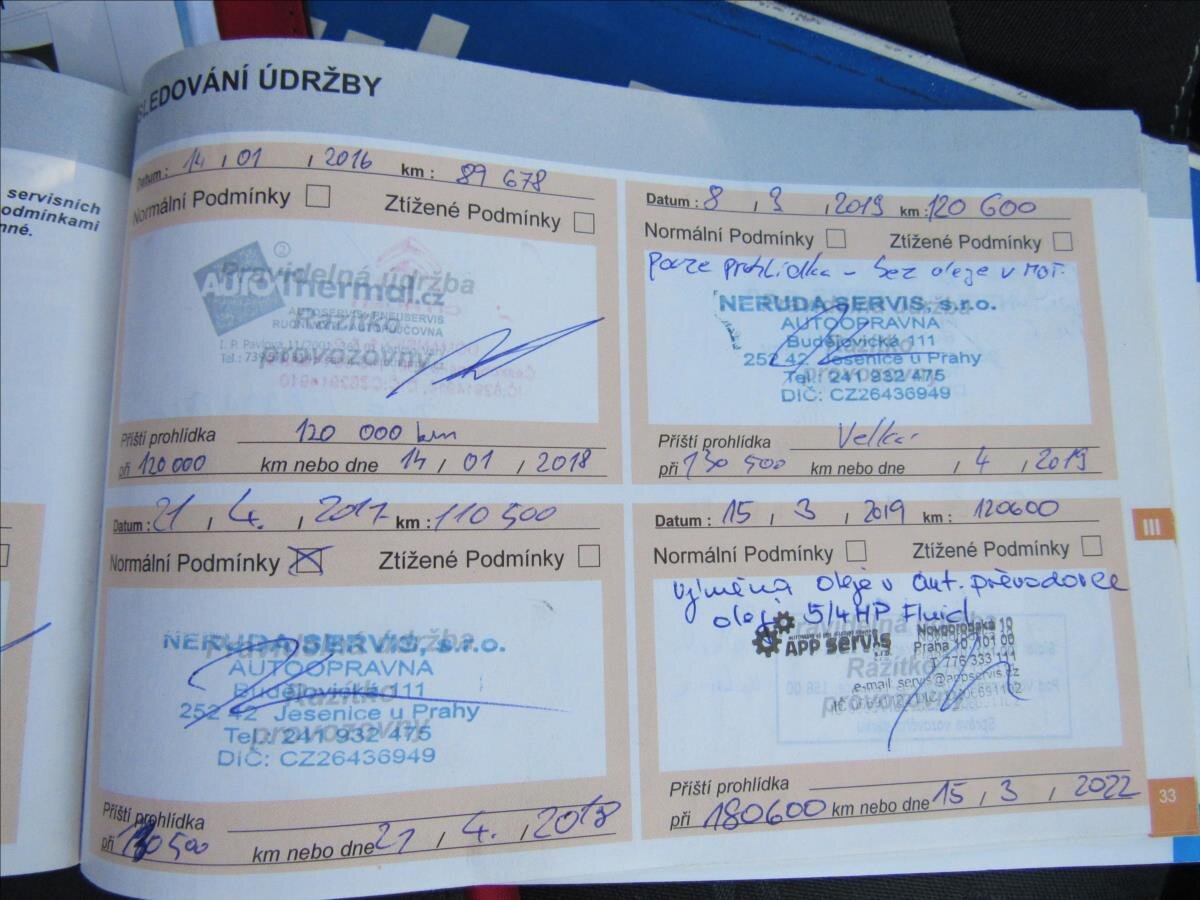 SLEDOVÁNÍ ÚDRŽBY
servisních
odmínkami
nné.
Datum: 14 , 01 , 2016 km: 89 678
Normální Podmínky Ztížené Podmínky
Pravidelná údržba
AUTOThermal.cz
AUTOSERVIS PNEUSERVIS
Razítko
provozovny
Příští prohlídka 120 000 km
při 120000 km nebo dne 14 , 01 , 2018
Datum: 21 , 4. , 2017 km: 110 500
Normální Podmínky Ztížené Podmínky
NERUDA SERVIS, s.r.o.
AUTOOPRAVNA
Budějovická 111
252 42 Jesenice u Prahy
Tel.: 241 932 475
DIČ: CZ26436949
Razítko
provozovny
Příští prohlídka
při 130 500 km nebo dne 21 , 4. , 2018
Datum: 8 , 3 , 2019 km: 120 600
Normální Podmínky Ztížené Podmínky
pouze prohlídka - bez oleje v mot.
NERUDA SERVIS, s.r.o.
AUTOOPRAVNA
Budějovická 111
252 42 Jesenice u Prahy
Tel.: 241 932 475
DIČ: CZ26436949
Razítko
provozovny
Příští prohlídka Velká
při 130 500 km nebo dne , 4 , 2019
Datum: 15 , 3 , 2019 km: 120600
Normální Podmínky Ztížené Podmínky
výměna oleje v aut. převodovce
olej 5/4HP Fluid
APP servis
Novopetrská 10
Praha 10, 101 00
T 776 333 111
e-mail servis@appservis.cz
Razítko
provozovny
Příští prohlídka
při 180600 km nebo dne 15 , 3 , 2022
III
33